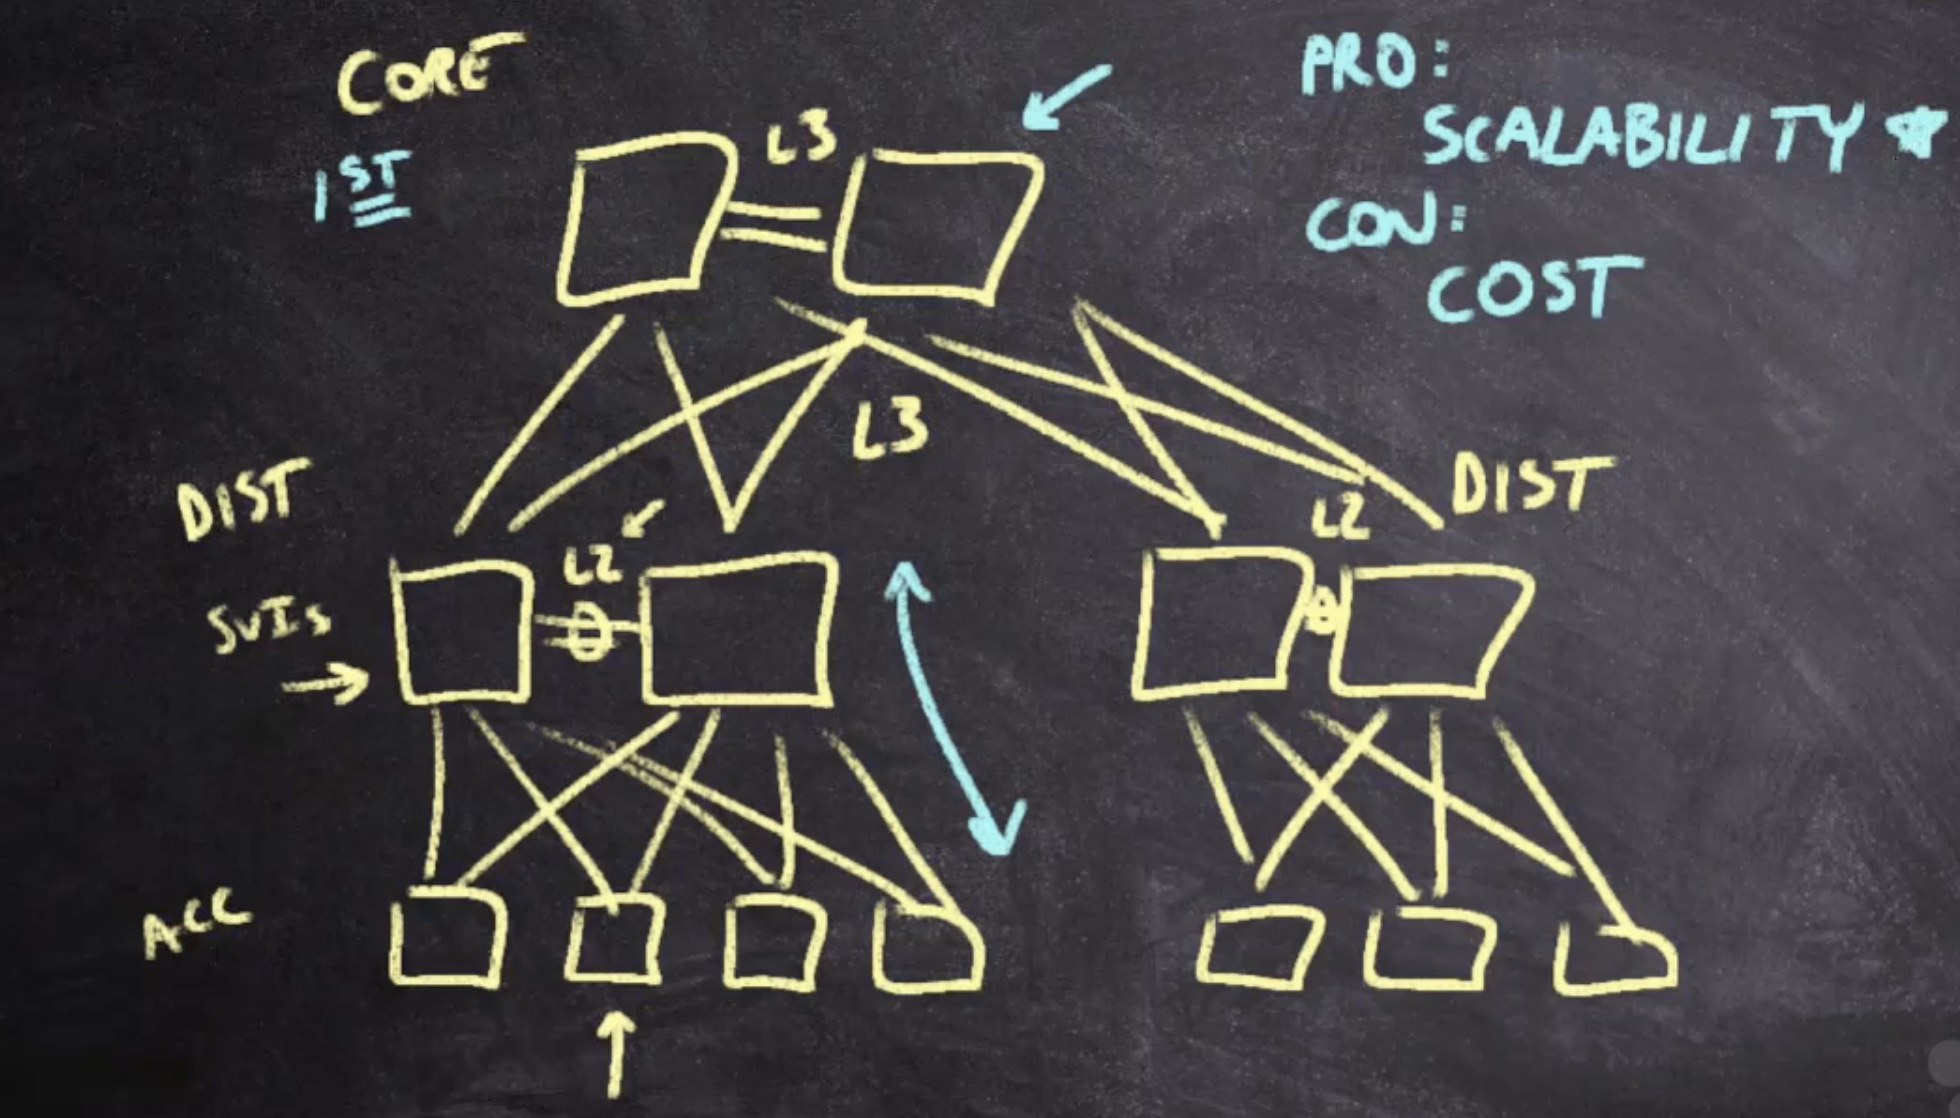 CORE
1ST
L3
PRO:
SCALABILITY
CON:
COST
L3
DIST
L2
SVIs
L2
DIST
ACC